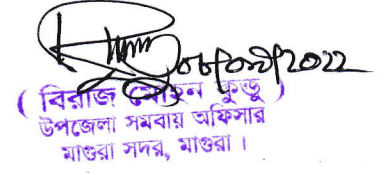 ০৮/০৯/২০২২
( বিরাজ মোহন কুন্ডু )
উপজেলা সমবায় অফিসার
মাগুরা সদর, মাগুরা ।